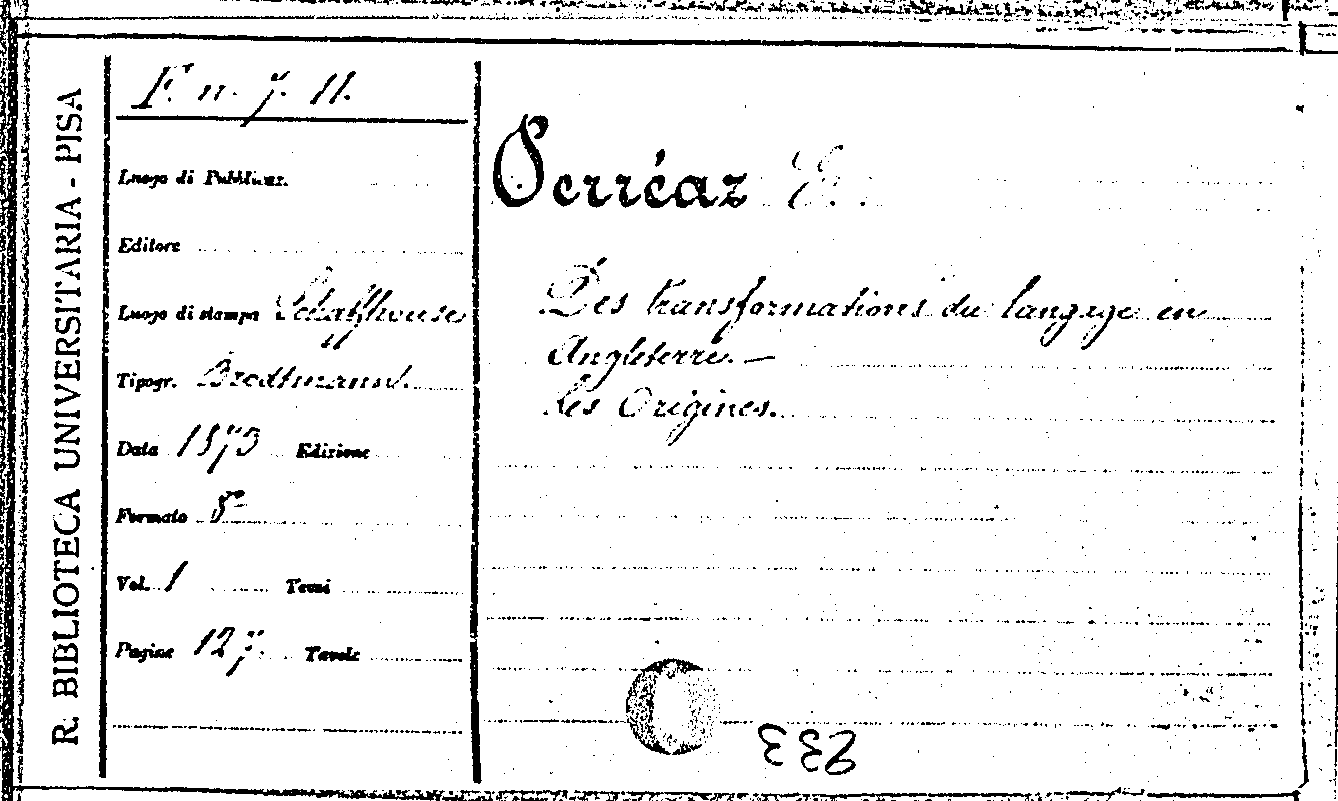 R. BIBLIOTECA UNIVERSITARIA - PISA
F. n. 7. 11.
Luogo di Pubblicaz.
Editore
Luogo di stampa Schaffhouse
Tipogr. Brodtmann
Data 1873 Edizione
Formato 8º
Vol. 1 Tomi
Pagine 127. Tavole
Perréaz E.
Des transformations du langage en
Angleterre. —
Les Origines.
233